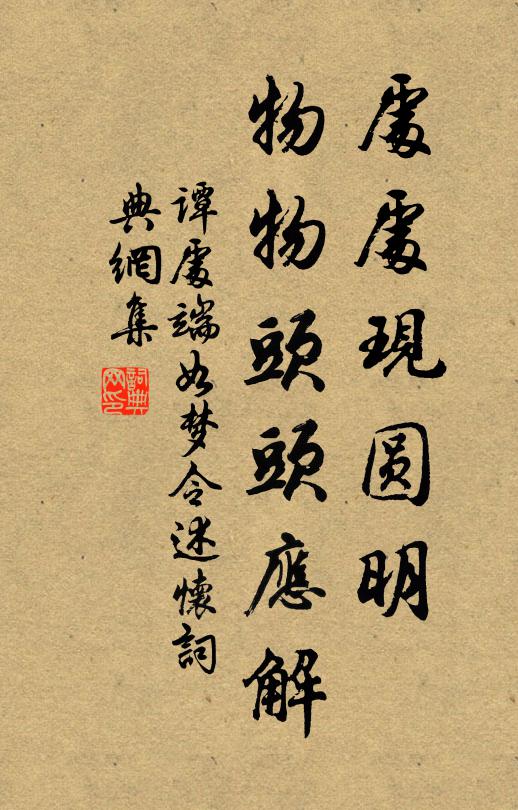 處處現圓明
物物頭頭應解
譚處端如梦令述懷詞
典網集
詞典
网印